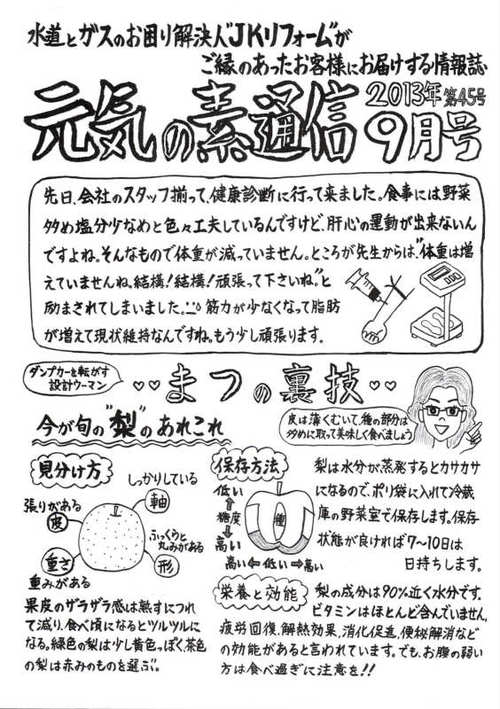 水道とガスのお困り解決人"JKリフォーム"が
ご縁のあったお客様にお届けする情報誌
元気の素通信
2013年 第45号
9月号
先日、会社のスタッフ揃って、健康診断に行って来ました。食事には野菜
多め塩分少なめと色々工夫しているんですけど、肝心の運動が出来ないん
ですよね。そんなもので体重が減っていません。ところが先生からは、"体重は増
えていませんね。結構!結構!頑張って下さいね。"と
励まされてしまいました。筋力が少なくなって脂肪
が増えて現状維持なんですね。もう少し頑張ります。
ダンプカーを転がす
設計ウーマン
まつの裏技
皮は薄くむいて、種の部分は
多めに取って美味しく食べましょう
今が旬の"梨"のあれこれ
見分け方
しっかりしている
軸
張りがある
皮
ふっくらと
丸みがある
形
重さ
重みがある
果皮のザラザラ感は熟すにつれ
て減り、食べ頃になるとツルツルに
なる。緑色の梨は少し黄色っぽく、茶色
の梨は赤みのものを選ぶ。
保存方法
低い
糖度
高い
種
高い 低い 高い
梨は水分が蒸発するとカサカサ
になるので、ポリ袋に入れて冷蔵
庫の野菜室で保存します。保存
状態が良ければ7〜10日は
日持ちします。
栄養と効能
梨の成分は90%近く水分です。
ビタミンはほとんど含んでいません。
疲労回復、解熱効果、消化促進、便秘解消などの
の効能があると言われています。でも、お腹の弱い
方は食べ過ぎに注意を!!